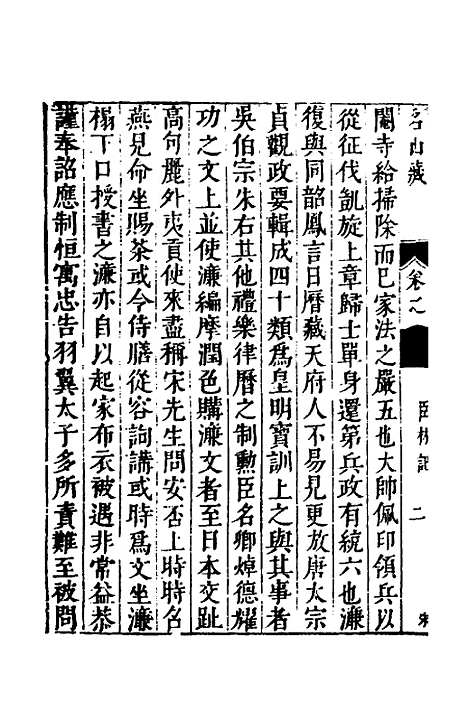 名山藏
卷之
臣林記
二
閹寺給掃除而巳家法之嚴五也大帥佩印領兵以
從征伐凱旋上章歸士單身還第兵政有統六也濂
復與同韶鳳言日曆藏天府人不易見更放唐太宗
貞觀政要輯成四十類爲皇明寶訓上之與其事者
吳伯宗朱右其他禮樂律曆之制勲臣名卿焯德耀
功之文上並使濂編摩潤色購濂文者至日本交趾
高句麗外夷貢使來盡稱宋先生問安否上時時召
燕見命坐賜茶或令侍膳從容詢講或時爲文坐濂
榻下口授書之濂亦自以起家布衣被遇非常益恭
謹奉詔應制恒寓忠告羽翼太子多所責難至被問